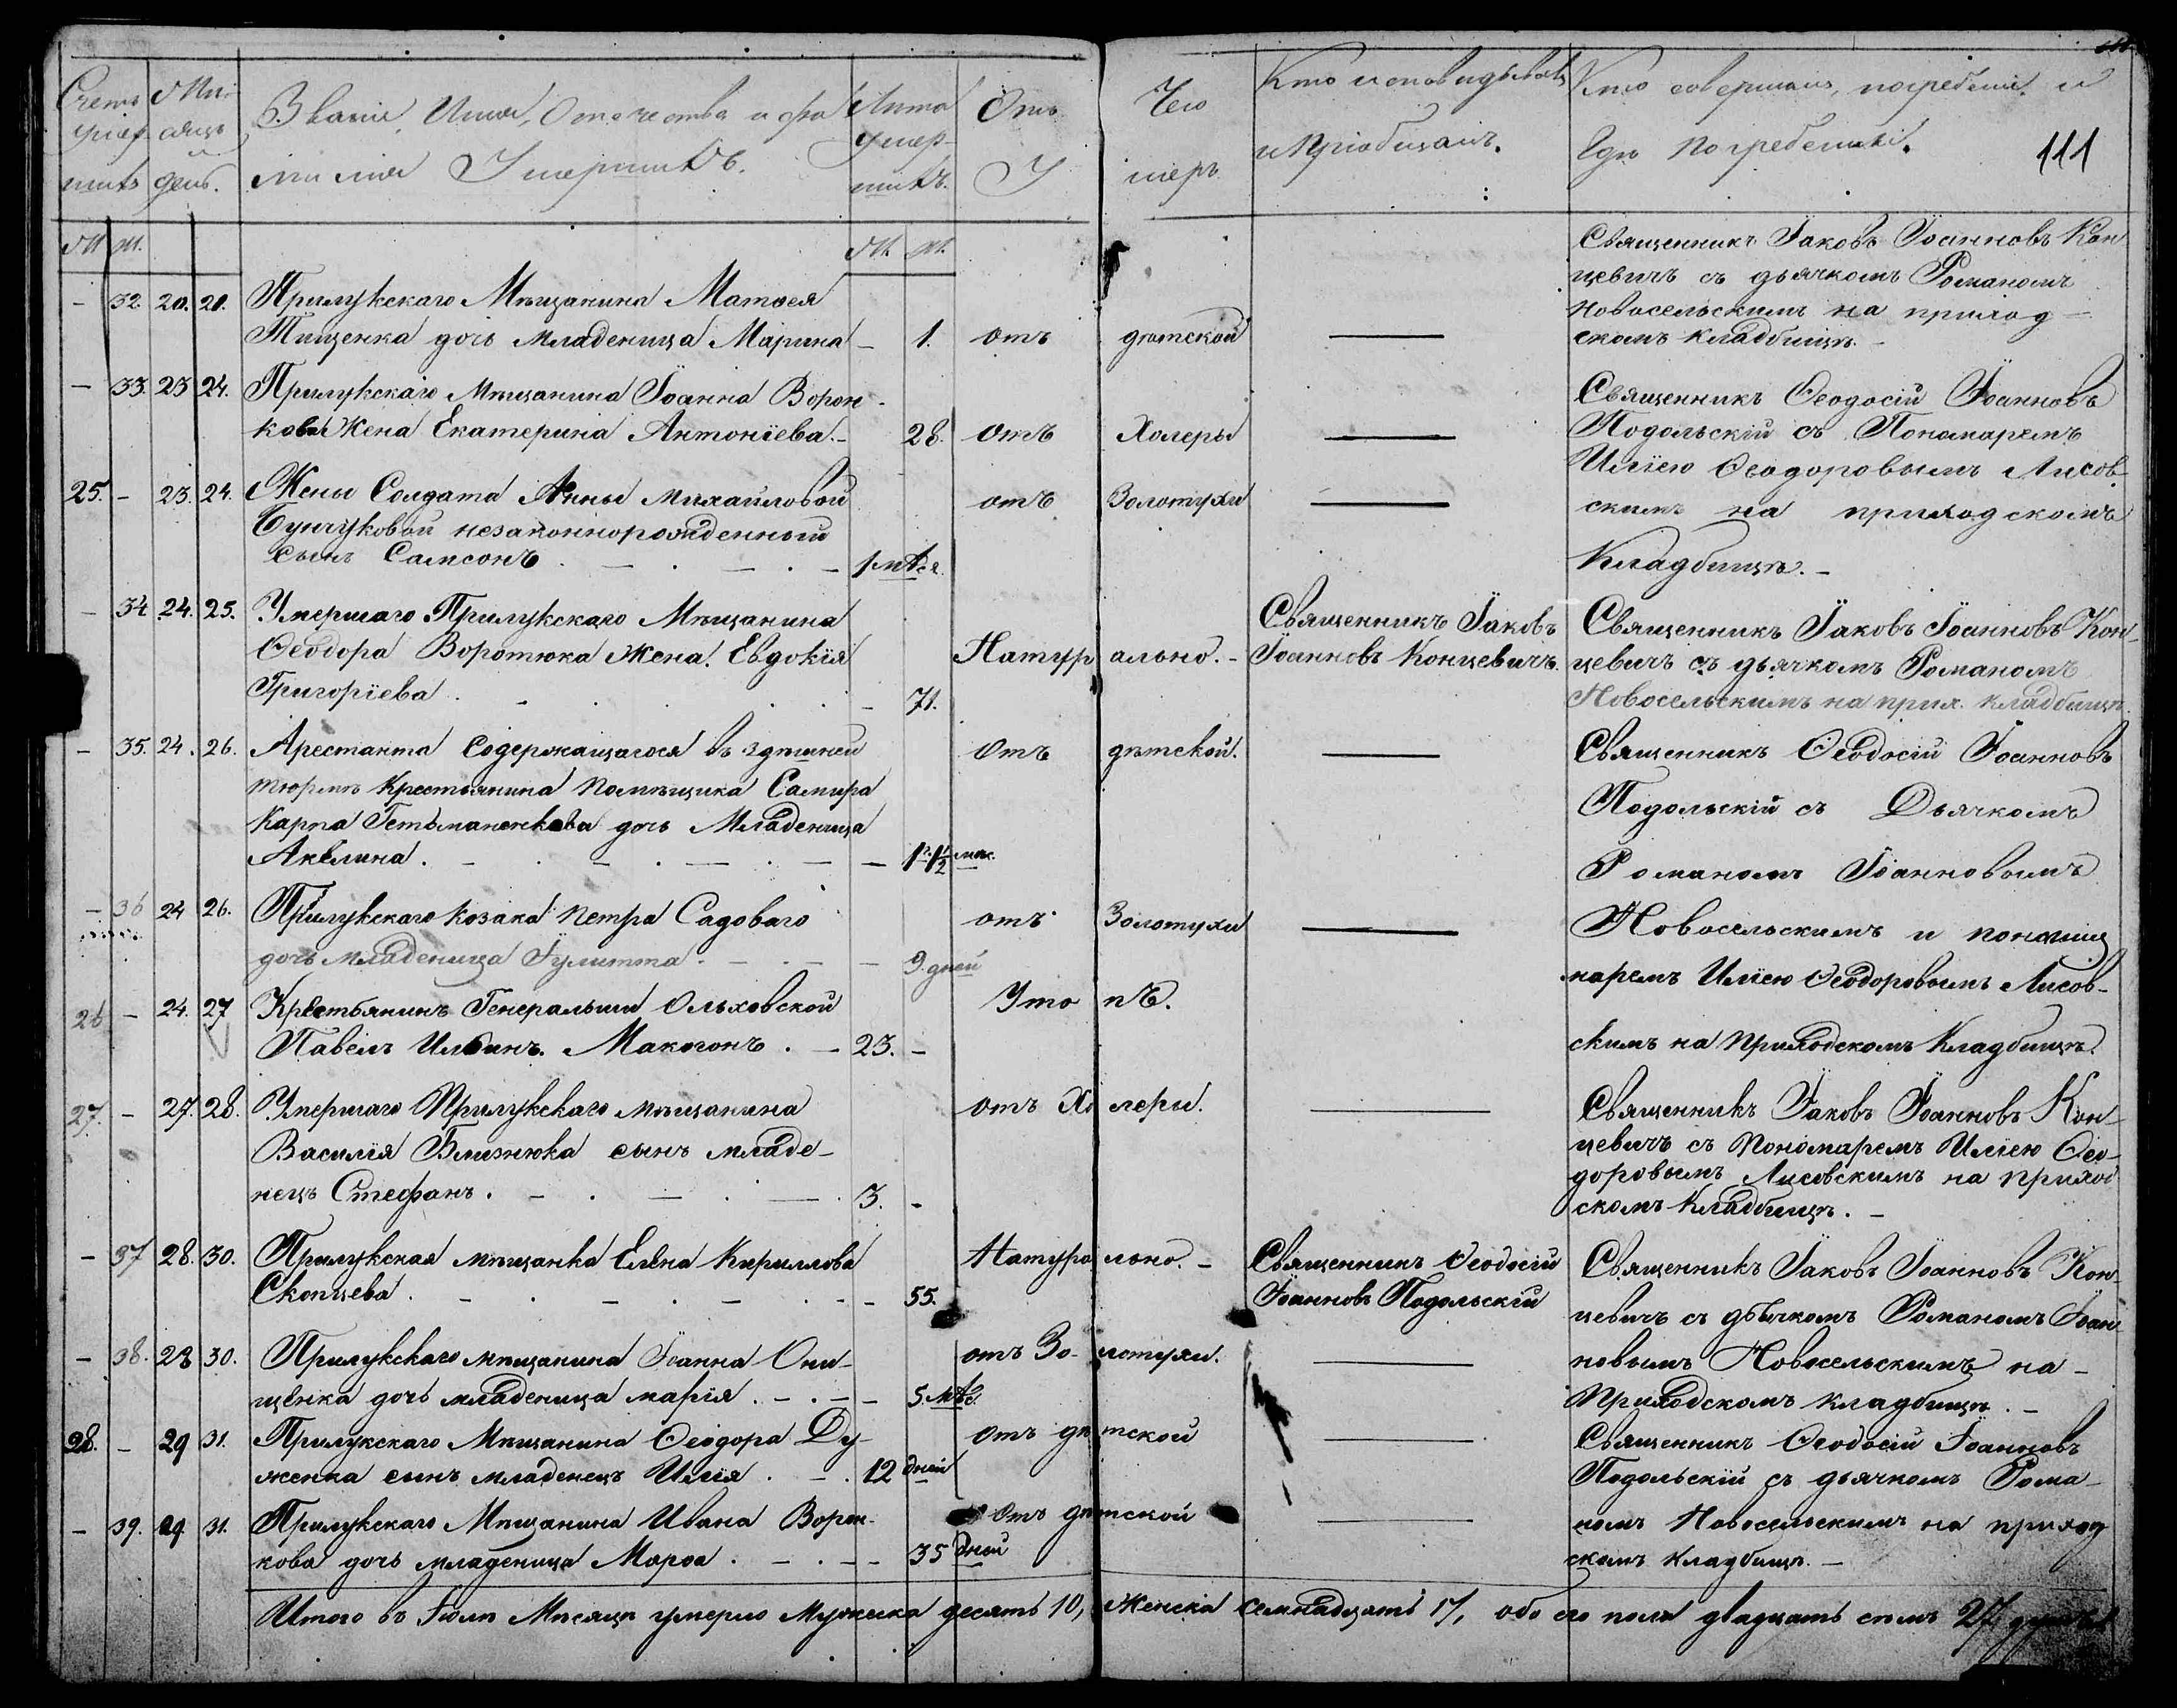 Счетъ умер-шихъ
Мѣ-сяцъ и день.
Званіе, Имя, Отечество и фа
милія Умершихъ.
Лѣта умер-шихъ.
Отъ Чего
У меръ
Кто исповѣдывалъ
и Пріобщалъ.
Кто совершалъ погребеніе и
гдѣ погребенны.
111
М. Ж.
М. Ж.
– 32. 20. 20. Прилукскаго Мѣщанина Матѳея
Тищенка дочь младеница Марина – 1. отъ дѣтской
Священникъ Іаковъ Іоанновъ Кон
цевичъ съ дьячкомъ Романомъ
Новосельскимъ на приход–
скомъ кладбищѣ. –
– 33. 23 24. Прилукскаго Мѣщанина Іоанна Ворон-
кова Жена Екатерина Антоніева. – 28. отъ Холеры
Священникъ Ѳеодосій Іоанновъ
Подольскій съ Пономаремъ
Иліею Ѳеодоровымъ Лисов-
скимъ на приходскомъ
Кладбищѣ. –
25. – 23. 24. Жены Солдата Анны Михайловой
Бунчуковой незаконнорожденный
сынъ Самсонъ . – . – . – 1 мѣся. отъ Золотухи
– 34 24. 25. Умершаго Прилукскаго Мѣщанина
Ѳеодора Воротюка жена Евдокія
Григоріева . – 71. Натурально. –
Священникъ Іаковъ
Іоанновъ Концевичъ.
Священникъ Іаковъ Іоанновъ Кон-
цевичъ съ дьячкомъ Романомъ
Новосельскимъ на прих. кладбищѣ.
– 35. 24. 26. Арестанта Содержащагося въ здѣшней
тюрмѣ Крестьянина Помѣщика Самира
Карпа Гетьманенкова дочь Младеница
Акилина . – . – . – . – – отъ дѣтской.
Священникъ Ѳеодосій Іоанновъ
Подольскій съ Дьячкомъ
Романомъ Іоанновымъ
Новосельскимъ и поно
маремъ Иліею Ѳеодоровымъ Лисов-
скимъ на Приходскомъ Кладбищѣ.
– 36 24 26. Прилукскаго Козака Петра Садоваго
дочь младеница Іулитта . – . – – 9. дней отъ Золотухи
26 – 24. 27 Крестьянинъ Генеральши Ольховской
Павелъ Ильинъ Макогонъ . – 23. – Утопъ.
27. – 27. 28. Умершаго Прилукскаго мѣщанина
Василія Близнюка сынъ младе-
нецъ Стефанъ . – . – . – . 3. – отъ Холери.
Священникъ Іаковъ Іоанновъ Кон-
цевичъ съ Пономаремъ Иліею Ѳео-
доровымъ Лисовскимъ на приход
скомъ Кладбищѣ. –
– 37 28. 30. Прилукская мѣщанка Елена Кириллова
Скопцева . – . – . – . – – 55. Натурально. –
Священникъ Ѳеодосій
Іоанновъ Подольскій
Священникъ Іаковъ Іоанновъ Кон-
цевичъ съ дьячкомъ Романомъ Іоан
новымъ Новосельскимъ на –
Приходскомъ кладбищѣ . –
– 38. 28 30. Прилукскаго мѣщанина Іоанна Они-
щенка дочь младеница марія . – . – – 5. мѣс. отъ Золотухи.
28. – 29 31. Прилукскаго Мѣщанина Ѳеодора Ду-
женка сынъ младенецъ Илія . – . 12 дней отъ дѣтской
Священникъ Ѳеодосій Іоанновъ
Подольскій съ дьячкомъ Рома-
номъ Новосельскимъ на приход
скомъ кладбищѣ. –
– 39. 29 31. Прилукскаго Мѣщанина Ивана Ворон-
кова дочь младеница Марѳа . – . – – 35 дней отъ дѣтской
Итого въ Іюлѣ Мѣсяцѣ умерло Мужеска десять 10, Женска семнадцать 17, обоего пола двадцать семь 27 душъ